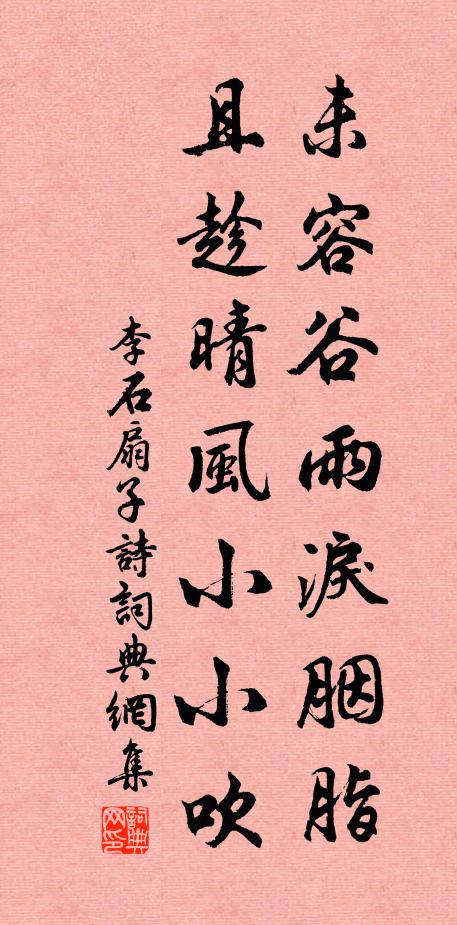 未容谷雨淚胭脂
且趁晴風小小吹
李石扇子詩詞典網集
詞典网印